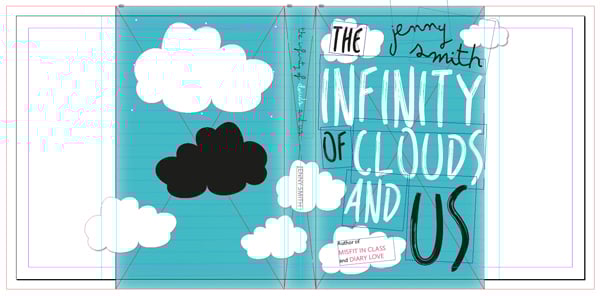 the infinity of clouds and us
JENNY SMITH
THE
jenny
smith
INFINITY
OF CLOUDS
AND
US
Author of
MISFIT IN CLASS
and DIARY LOVE